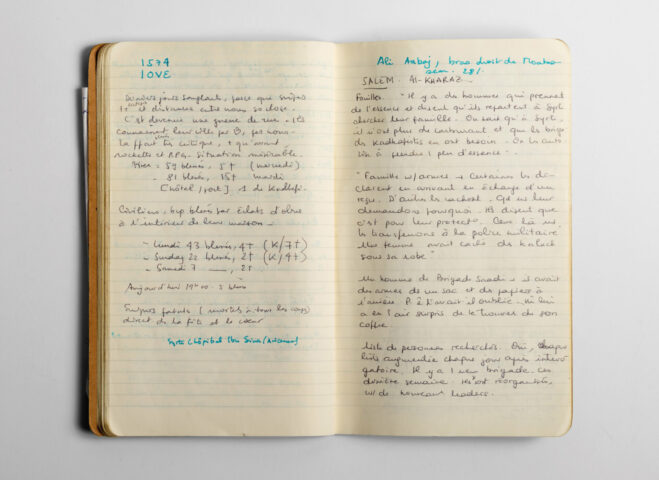 1574
LOVE
Derniers jours sanglants, parce que snipers
et distances entre nous so close.
C'est devenu une guerre de rue. Ils
connaissent leur ville par ♥, pas nous.
La faut très critique, + qui avant
rockets et RPG. Situation misérable.
Hier = 59 blessés, 5† (mercredi)
- 81 blessés, 15† mardi
[hôtel/port], 1 de Kadhafi.
Civilians, bcp blessés par éclats d'obus
à l'intérieur de leur maison -
- Lundi 43 blessés, 4† (K/7†)
- Sunday 22 blessés, 2† (K/4†)
- Samedi 7 —, 2†
Aujourd'hui 19h00. 3 blessés
Snipers (mortels à tous les coups)
direct de la tête et le cœur
Syrte (hôpital Ibn Sina/Avicenne)
Ali, bras droit de
28/.
SALEM. Al-KHARAZ
Familles. "Il y a des hommes qui prennent
de l'essence et disent qu'ils repartent à Syrte
chercher leur famille. On sait qu'à Syrte,
il n'ont plus de carburant et que les brigades
des Kadhafistes en ont besoin. On les autorise
à prendre 1 peu d'essence".
"Familles w/armes → Certaines les dé-
clarent en arrivant en échange d'un
reçu. D'autres les cachent. Qd on leur
demande pourquoi. Ils disent que
c'est pour leur protect°. Ceux là, on
les transférons à la police militaire.
Une femme avait caché des kalach
sous sa robe"
Un homme de Brigade Saadi → il avait
des armes ds un sac et des papiers à
l'arrière. P. È. L'avait il oublié. Mi lui
a eu l'air surpris de le trouver ds son
coffre.
Liste de personnes recherchées. Oui, chaque
liste augmentée chaque jour après interro
gatoire. Il y a 1 new brigade ces
dernière semaine. Ils ont réorganisés,
w/de nouveaux leaders.